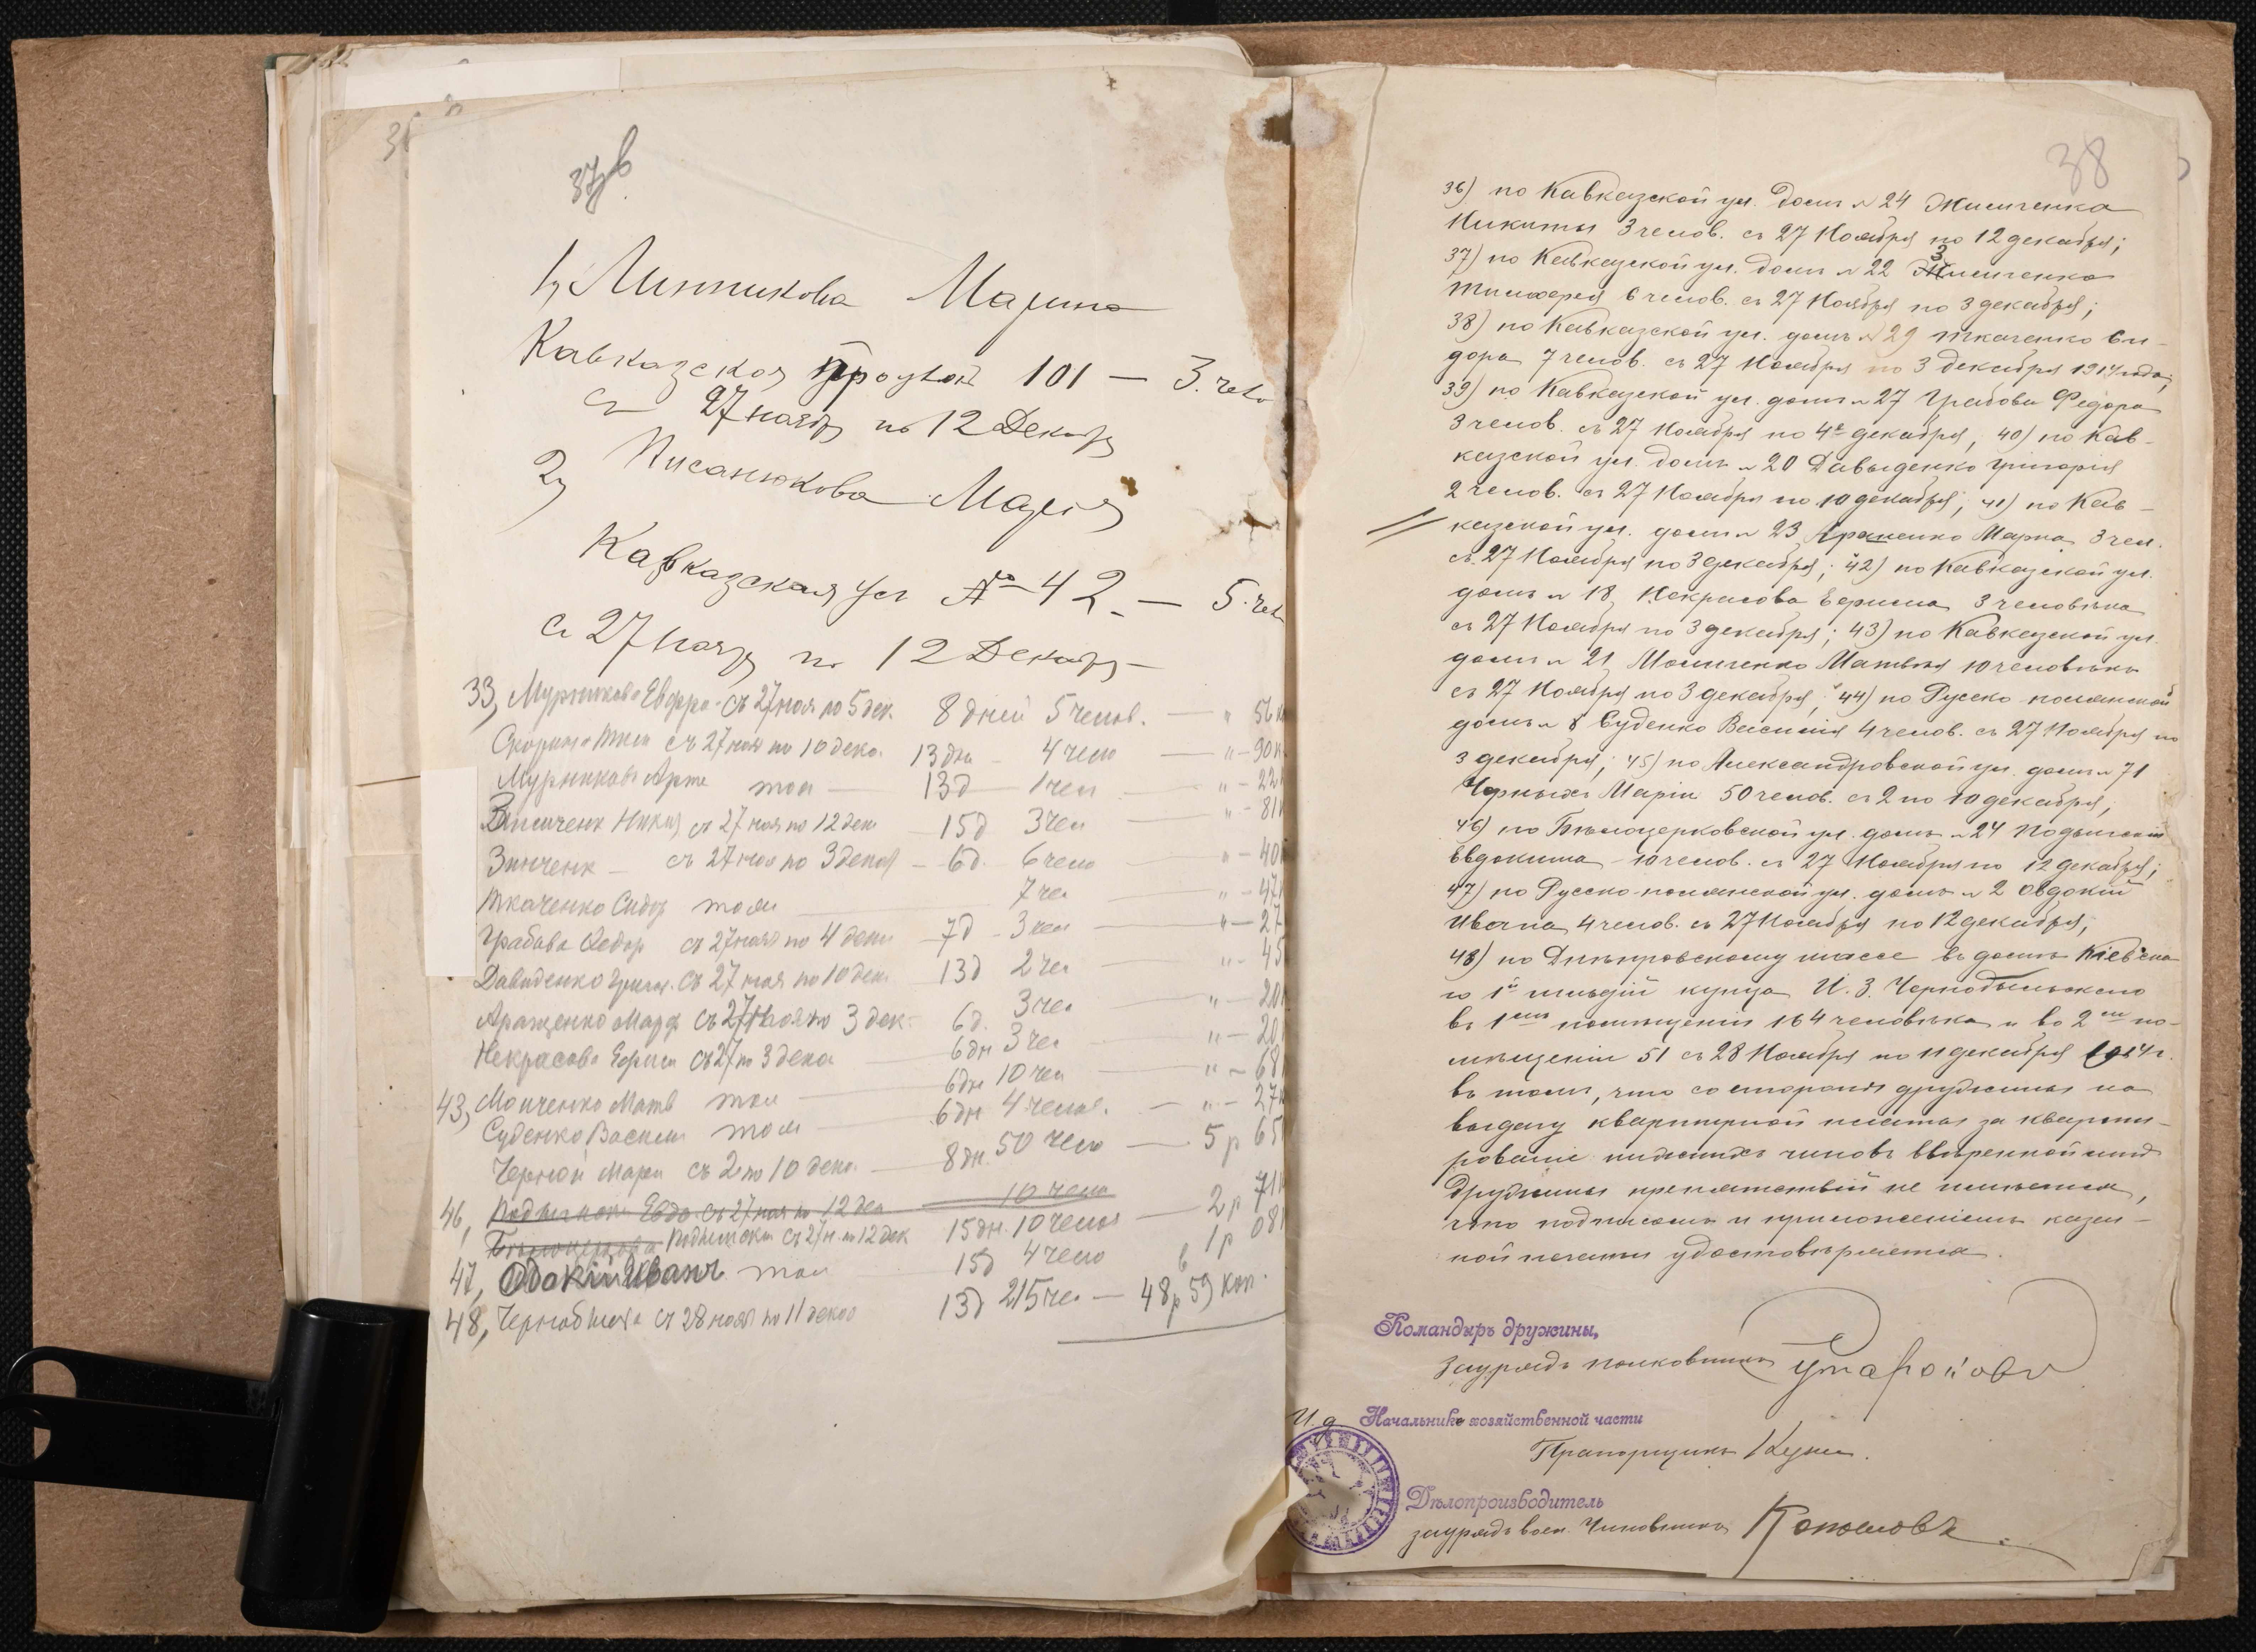 37в
1) Линникова Марина
Кавказская 101 — 3. чело
съ 27 ноября по 12 Декабр
2) Писанюкова Марія
Кавказская ул № 42 — 5. чел
съ 27 нояб по 12 Декабр
33, съ 27 ноя по 5 дек. 8 дней 5 челов. — " 56 к
съ 27 ноя по 10 дека. 13 дн — 4 чело — " — 90 к
Мурзикова Арте тож — 13 д — 1 чел — " — 22
Зинченк Никит съ 27 ноя по 12 дек 15 д 3 чел — " — 81
Зинченк — съ 27 ноя по 3 декаб — 6 д. 6 чело — " — 40
Ткаченко Сидор тоже — 7 чел — " — 47
Грабова Федор съ 27 нояб по 4 дека 7 д — 3 чел — " — 27
Давиденко Григор. съ 27 ноя по 10 дек. 13 д 2 чел — " — 45
Аращенко Марф съ 27 ноя по 3 дек. 6 д. 3 чел — " — 20
Некрасова Ефрем съ 27 по 3 дека 6 дн 3 чел — " — 20
43, Моиченко Матв тож — 6 дн 10 чел — " — 68
Суденко Васили тож — 6 дн 4 челов. — " — 27
Черной Мари съ 2 по 10 дека. — 8 дн. 50 чело — 5 р 65
46, Евдо. съ 27 ноя по 12 дек 10 чело
съ 27 н. по 12 дек 15 дн. 10 челов — 2 р 71
47, Овдокій Иванъ тож 15 д 4 чело 1 р 08
48, съ 28 нояб по 11 декаб 13 д 215 чел — 48 р 59 коп.
38
36) по Кавказской ул. домъ № 24 Жиличенка
Никиты 3 челов. съ 27 Ноября по 12 декабря;
37) по Кавказской ул. домъ № 22 Зинченко
Тимофея 6 челов. съ 27 Ноября по 3 декабря;
38) по Кавказской ул. домъ № 29 Ткаченко Си-
дора 7 челов. съ 27 Ноября по 3 декабря 1914 года;
39) по Кавказской ул. домъ № 27 Грабова Федора
3 челов. съ 27 Ноября по 4е декабря, 40) по Кав-
казской ул. домъ № 20 Давыденко Григорія
2 челов. съ 27 Ноября по 10 декабря; 41) по Кав-
казской ул. домъ № 23 Аращенко Марфа 3 чел.
съ 27 Ноября по 3 декабря; 42) по Кавказской ул.
домъ № 18, Некрасова Ефрема 3 человѣка
съ 27 Ноября по 3 декабря; 43) по Кавказской ул.
домъ № 21, Моиченко Матвѣя 10 человѣкъ
съ 27 Ноября по 3 декабря; 44) по Русско полянской
домъ № 8 Суденко Василія 4 челов. съ 27 Ноября по
3 декабря; 45) по Александровской ул. домъ № 71
Черныхъ Маріи 50 челов. съ 2 по 10 декабря;
46) по Бѣлоцерковской ул. домъ № 24
Евдокима 10 челов. съ 27 Ноября по 12 декабря;
47) по Русско-полянской ул. домъ № 2 Овдокій
Ивана 4 челов. съ 27 Ноября по 12 декабря;
48) по Днѣпровскому шоссе въ домѣ Кіевска-
го 1й гильдіи купца И. З. Чернобыльскаго
въ 1омъ помѣщеніи 164 человѣка и во 2омъ по-
мѣщеніи 51 съ 28 Ноября по 11 декабря 1914 г.
въ томъ, что со стороны дружины на
выдачу квартирной платы за кварти-
рованіе нижнихъ чиновъ ввѣренной мнѣ
дружины препятствій не имѣется,
что подписомъ и приложеніемъ казен-
ной печати удостовѣряется.
Командиръ дружины,
Зауридъ полковникъ
И. д. Начальника хозяйственной части
Прапорщикъ
Дѣлопроизводитель
зауридъ воен. Чиновникъ